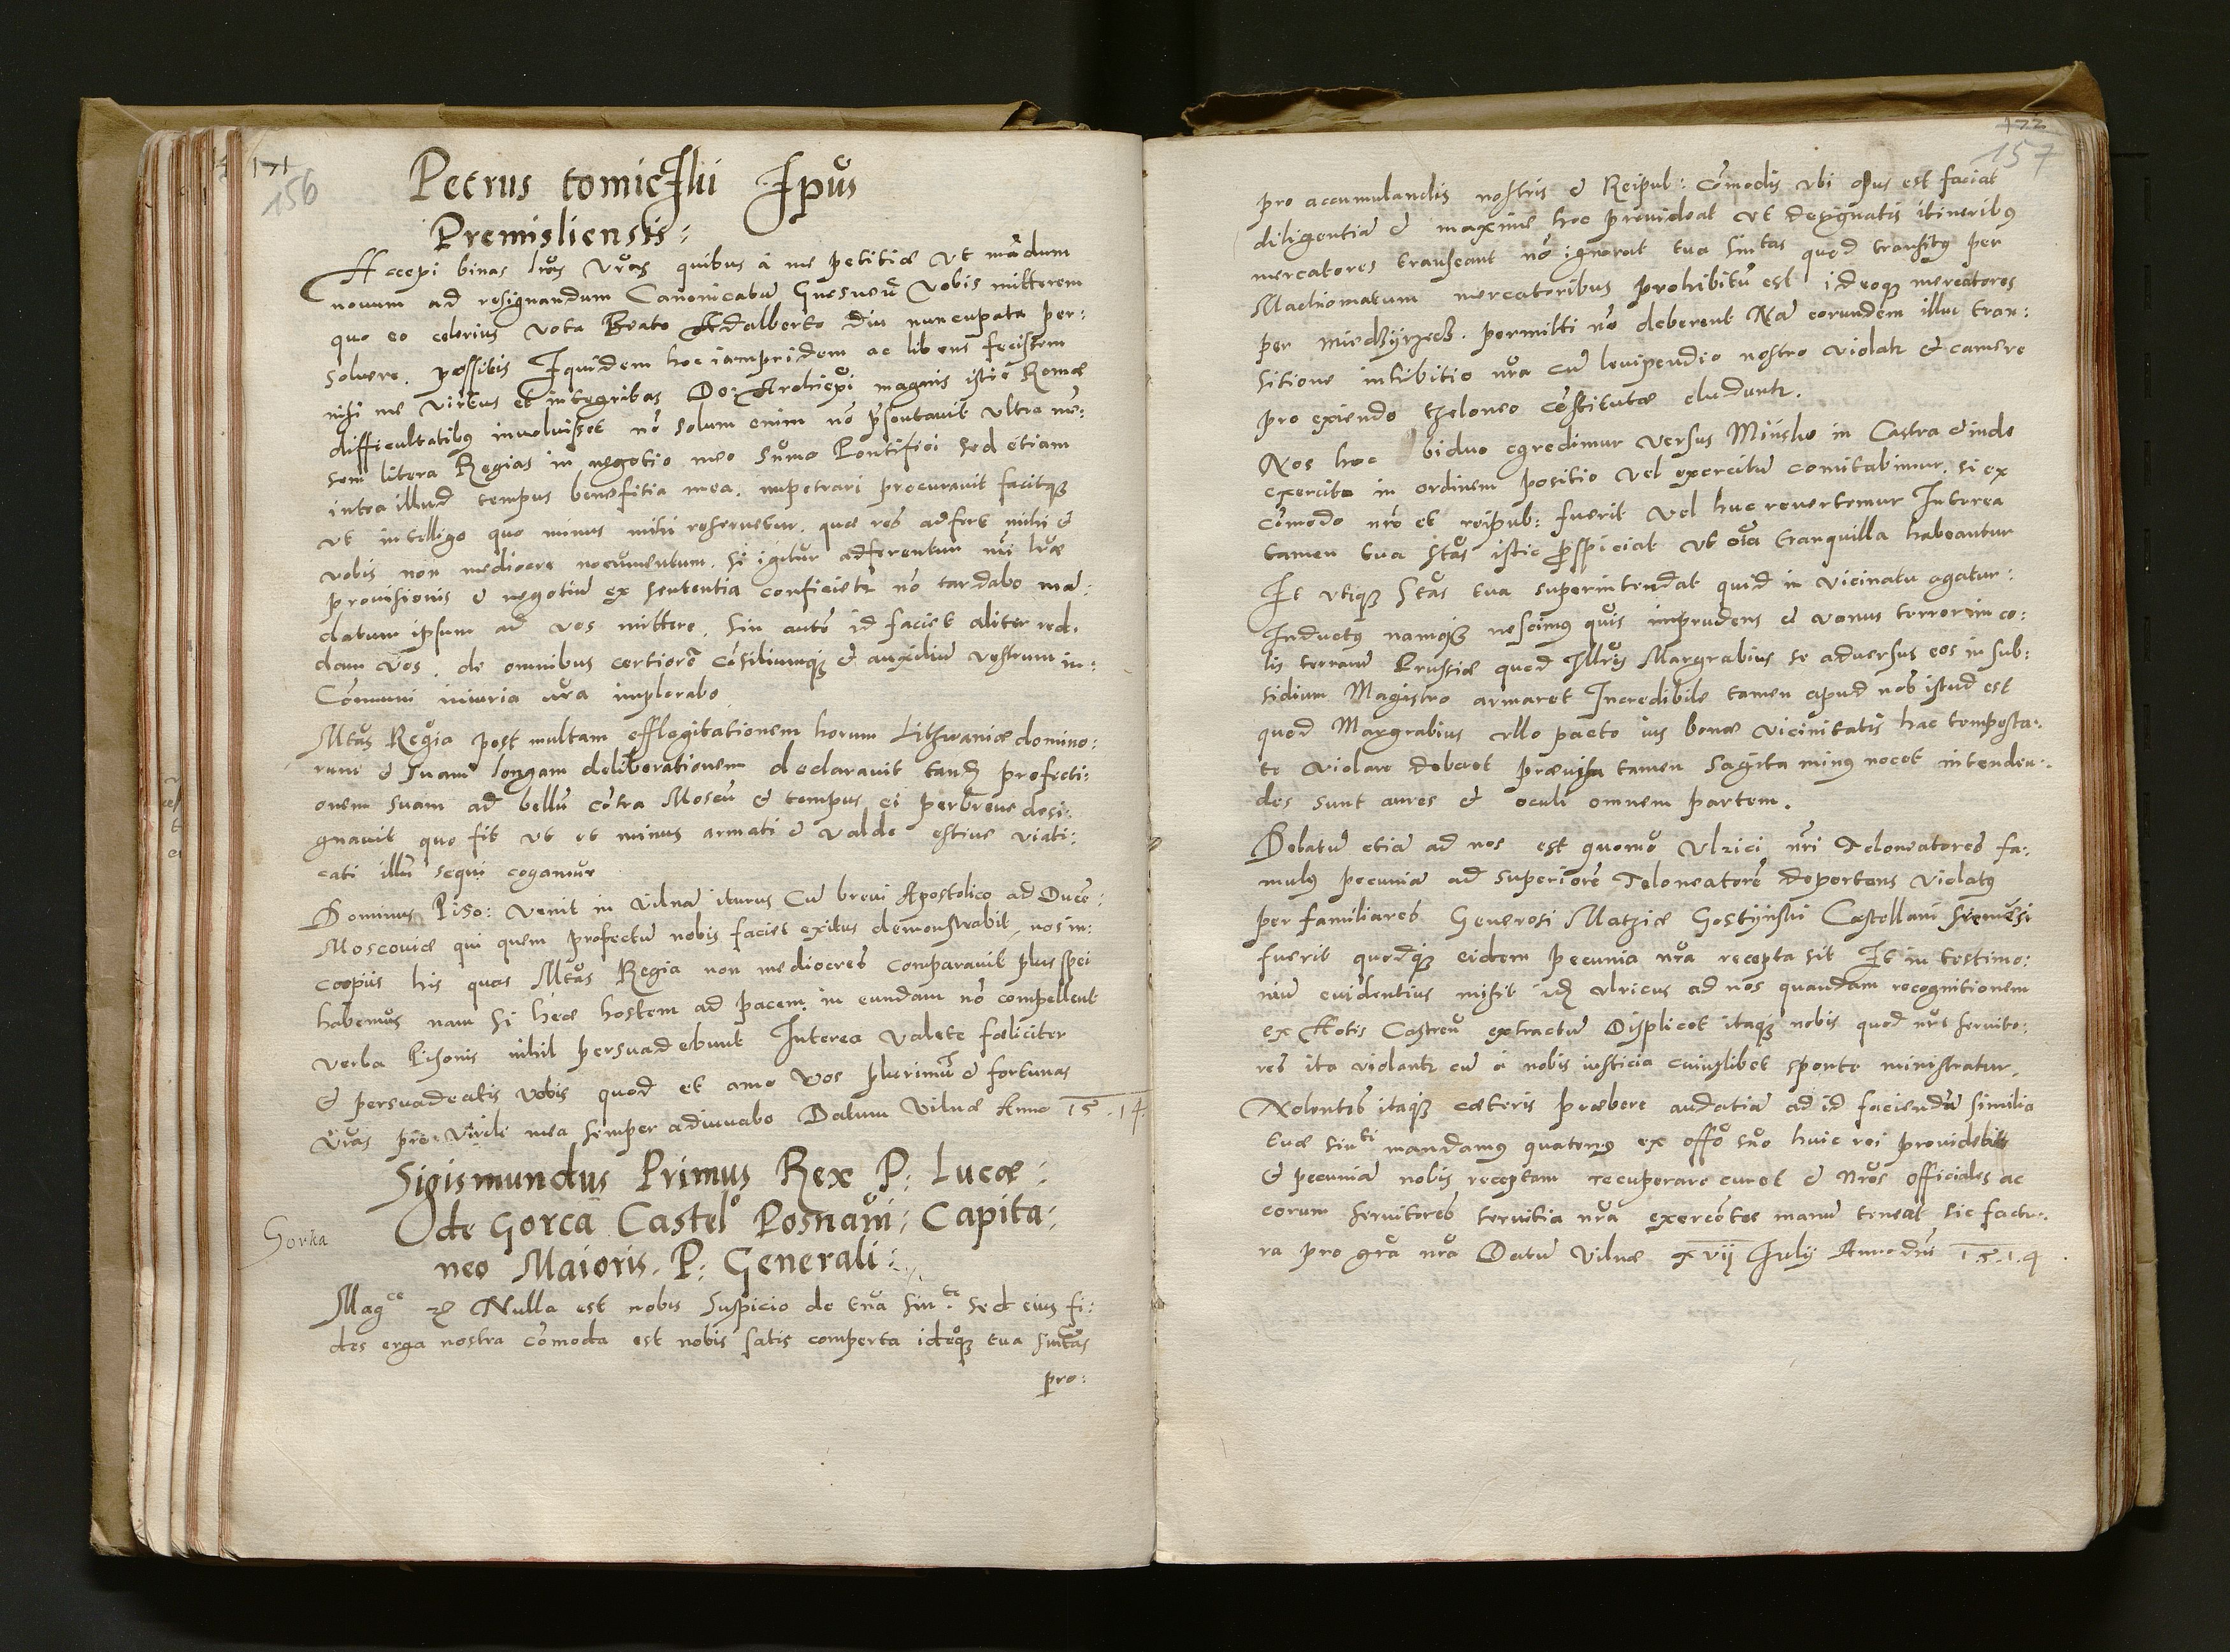 171
156
Petrus tomicJlii Ipu̅s
Premisliensis:
Accepi binas lr̅as vr̅as quibus á me petitiæ vt ma̅dum
nouum ad resignandum Canonicatum Gnesneu̅ vobis mitterem
quo eo celerius vota Beato Adalberto diu nuncupata per:
soluere. possitis Equidem hoc iampridem ac libens fecissem
nisi me virtus et integritas Do: Archiep̅i magnis istic Romæ
difficultatibus inuoluisset no̅ solum enim no̅ p̅sentauit vltra me̅:
sem litera Regias in negotio meo Sum̅o Pontifici sed etiam
intra illud tempus benefitia mea. impetrari procurauit facitq̨
vt intelligo quo minus mihi reseruetur. quæ res adfert mihi &
vobis non mediocre nocumentum. si igitur adferentur mi lr̅æ
prouisionis & negotiu̅ ex sententia conficietr no̅ tardabo ma̅:
datum ipsum ad vos mittere. sin aute̅ id faciet aliter red:
dam vos. de omnibus certiore̅ co̅siliumq̨ & auxilium vestrum in:
Com̅uni iniuria nr̅a implorabo.
Mtas̅ Regia post multam efflagitationem horum Lithwaniæ domino:
rum & suam longam deliberationem declarauit tande̅ profecti:
onem suam ad bellu̅ co̅tra Moscu̅ & tempus ei perbreue desi:
gnauit quo fit vt et minus armati & valde estiue viati:
cati illu̅ sequi cogamur
Dominus Piso: venit in Vilna̅ iturus Cu̅ breui Apostolico ad Duce̅:
Moscouiæ qui quem profectu̅ nobis faciet exitus demonstrabit, nos in:
coopiis his quas Mtas̅ Regia non mediocres comparauit plus spei
habemus nam si heæ hostem ad pacem in eundam no̅ compellent
verba Pisonis nihil persuadebunt Interea valete fæliciter
& persuadeatis vobis quod et amo vos plurimu̅ & fortunas
vr̅as pro virile mea semper adiuuabo Datum Vilnæ Anno 15.14
Sigismundus Primus Rex P: Lucæ:
de Gorca Castelo̅ Posnan̅i: Capita:
neo Maioris. P: Generali:
Gorka
Magce &c Nulla est nobis suspicio de tua̅ sinte. sed eius fi:
des erga nostra co̅moda est nobis satis comperta ideoq̨ tua sintas̅
pro:
172
157
pro accumulandis nostris & Reipub: Co̅modis vbi opus est faciat
diligentia̅ & maxime hoc prouideat vt designatis itineribus
mercatores transeant no̅ ignorat tua sintas quod transitus per
Mach̅omatum mercatoribus prohibitu̅ est ideoq̨ mercatores
per miedzyrzecz. permitti no̅ deberent Na̅ eorundem illuc tran:
sitione inhibitio nr̅a cu̅ leuipendio nostro violatr & cameræ
pro exiendo theloneo co̅stitutæ eluduntr.
Nos hoc biduo egredimur versus Minsko in Castra & inde
exercitu in ordinem positio vel exercitu̅ comitabimur. si ex
co̅modo nr̅o et reipub: fuerit vel huc reuertemur Interea
tamen tua Stas̅ istic p̅spiciat vt oi̅a tranquilla habeantur
Et vtiq̨ Stas̅ tua superintendat quid in vicinatu agatur:
Inductus namq̨ nescimus quis imprudens & vanus terror inco:
lis terraru̅ Prussiæ quod Illri̅s Margrabius se aduersus eos in sub:
sidium Magistro armaret Incredibile tamen apud nos istud est
quod Margrabius vllo pacto ius bonæ vicinitatis hac tempesta:
te violare deberet præuisa tamen sagita minus nocet intenden:
des sunt aures & oculi omnem partem.
Delatu̅ etia̅ ad nos est quomo̅ Vlrici nr̅i Teloneatores fa:
mulus pecunia̅ ad superiore̅ Teloneatore̅ deportans violatus
per familiares Generosi Mathiæ Gostijnski Castellani Sremen̅si
fuerit quodq̨ eidem pecunia nr̅a recepta sit Et in testimo:
niu̅ euidentius misit ide̅ vlricus ad nos quandam recognitionem
ex Actis Castren̅ extractu̅ Displicet itaq̨ nobis quod nr̅i seruito:
res ita violantr cu̅ á nobis iusticia cuiuslibet sponte ministratur,
Nolentes itaq̨ cæteris præbere audatia̅ ad id faciendu̅ similia
tuæ sinti mandamus quatenus ex offo̅ suo̅ huic rei prouidebit
& pecunia̅ nobis receptam recuperare curet & nr̅os officiales ac
eorum seruitores seruitia nr̅a exerce̅tes manu̅ teneat sic factu:
ra pro gra̅ nr̅a Datu̅ Vilnæ xvij Julij Anno dni̅ 1.5.1.4.